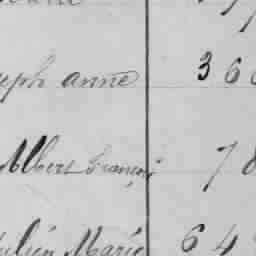 eph anne 3 6
Albert François 7 8
ulien Marie 6 4